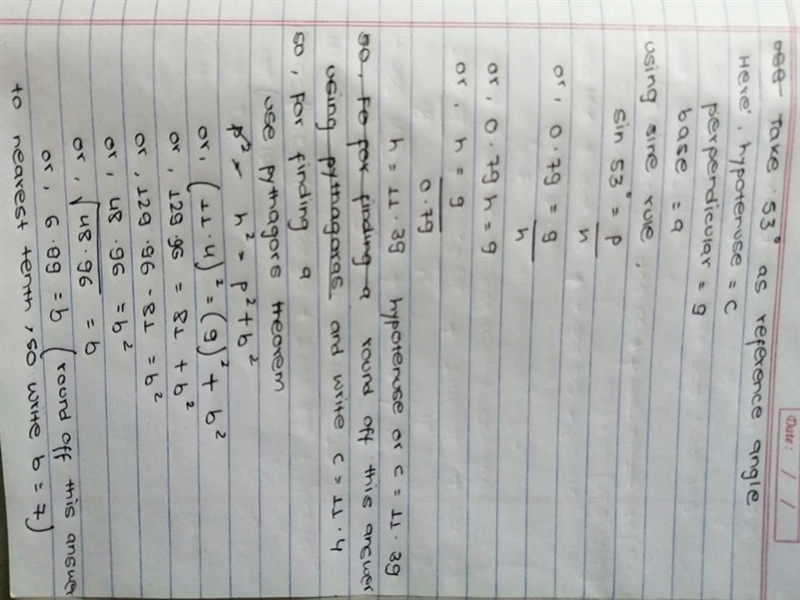 Date: / /
Take 53° as reference angle
Here, hypotenuse = c
perpendicular = 9
base = a
using sine rule,
sin 53° = p
h
or, 0.79 = 9
h
or, 0.79 h = 9
or, h = 9
0.79
h = 11.39 hypotenuse or c = 11.39
so, fo for finding a round off this answer
using pythagoras and write c = 11.4
so, for finding a
use pythagors theorem
p² = h² = p² + b²
or, (11.4)² = (9)² + b²
or, 129.96 = 81 + b²
or, 129.96 - 81 = b²
or, 48.96 = b²
or, √48.96 = b
or, 6.99 = b (round off this answer
to nearest tenth, so write b = 7)